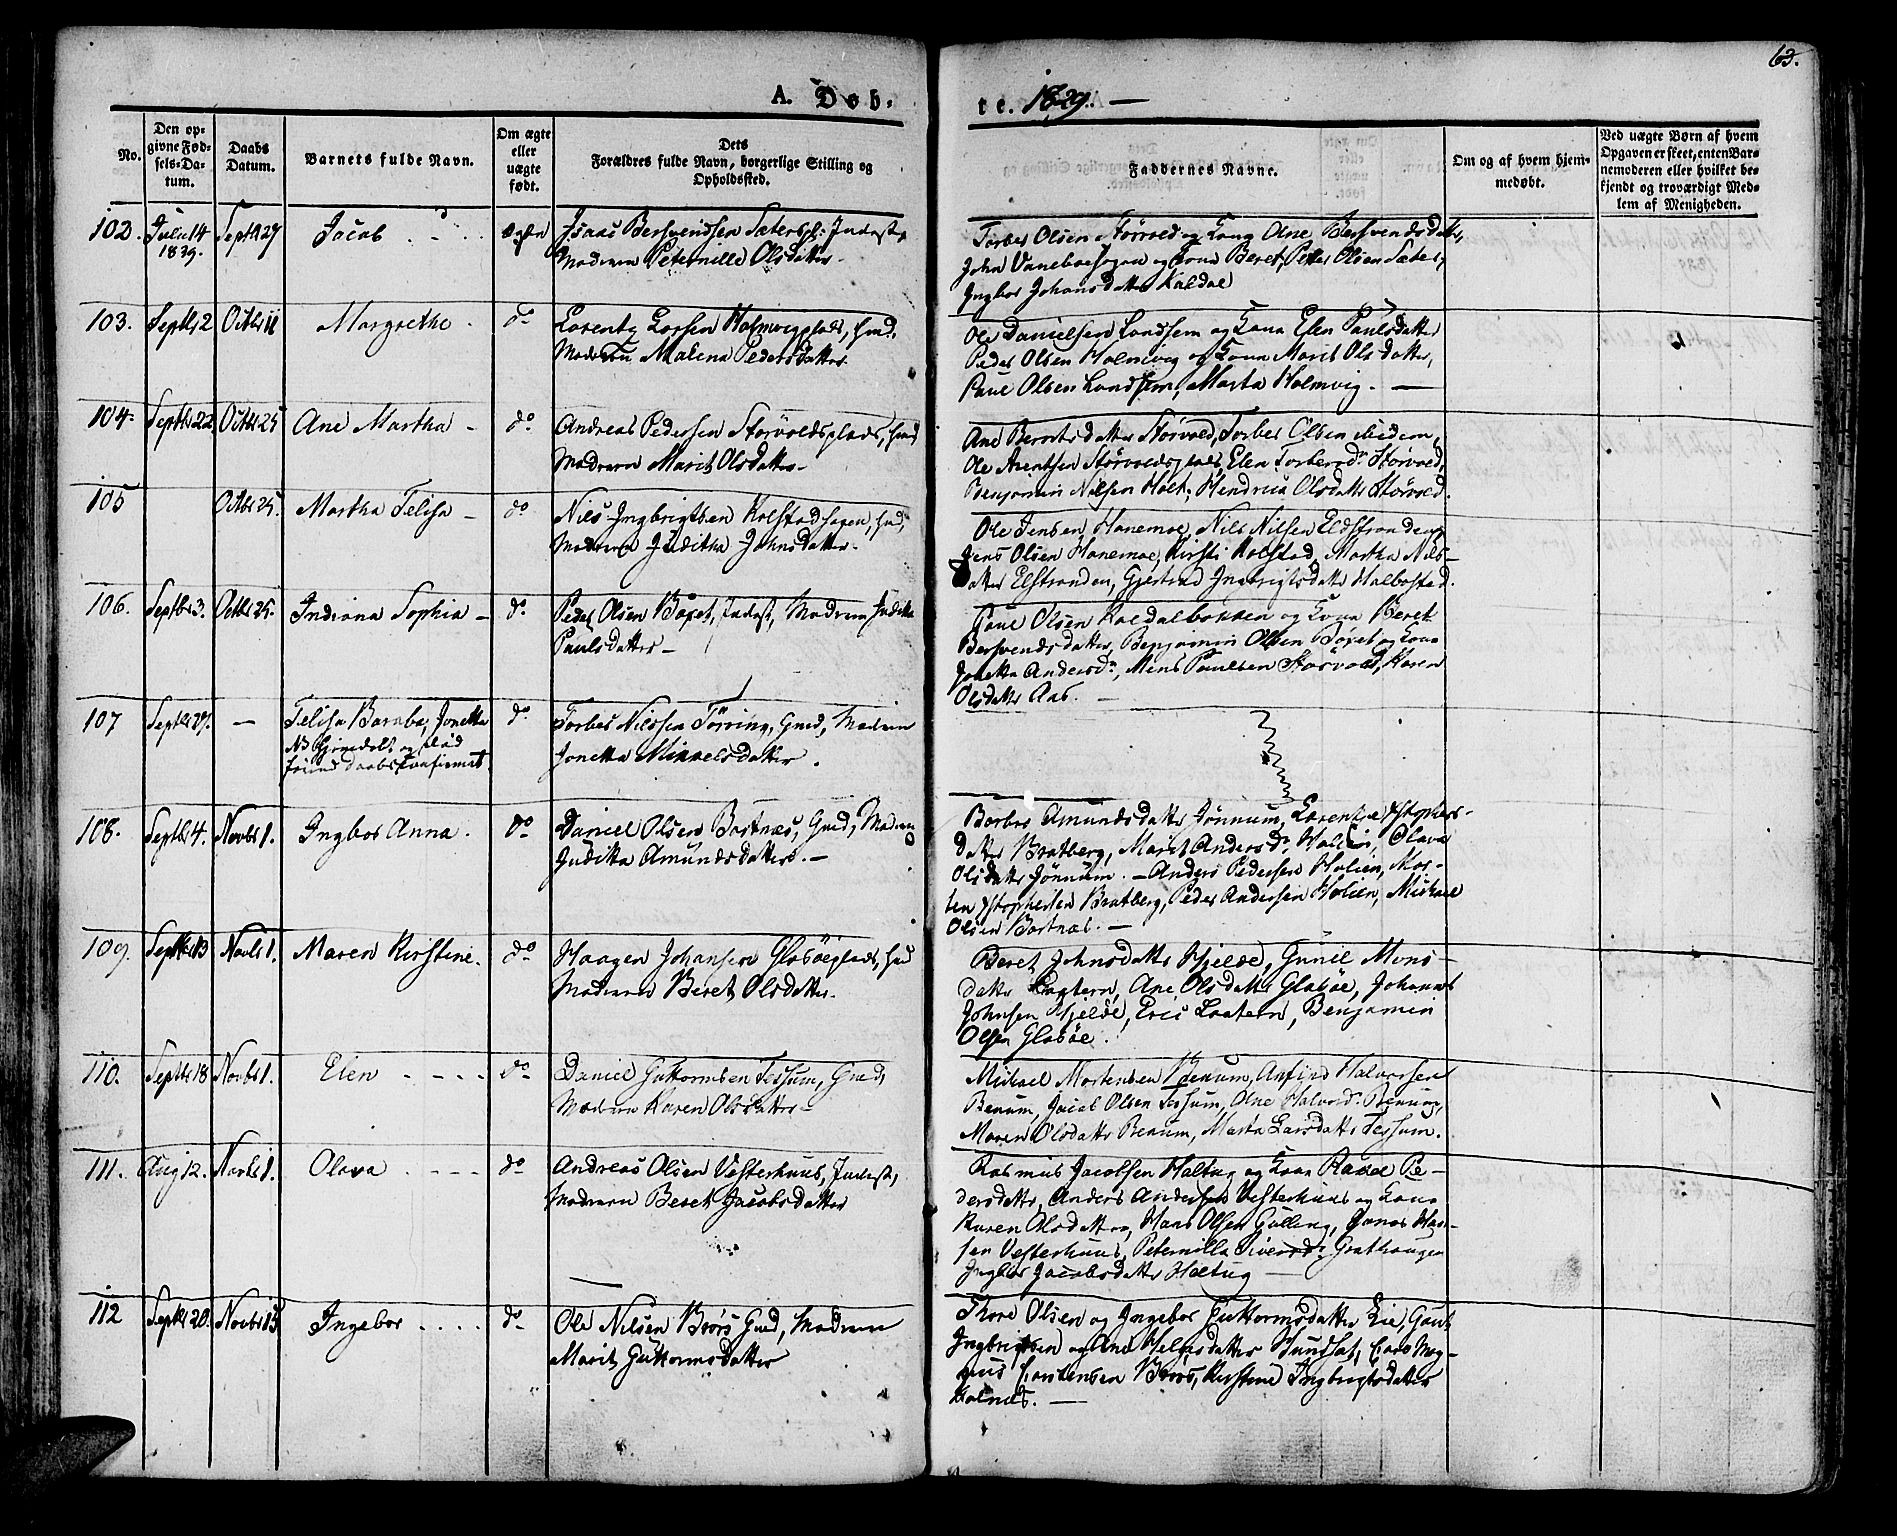 63.
A. Døb-
te. 1829. —
No.
Den op-
givne Fød-
sels-Da-
tum.
Daabs
Datum.
Barnets fulde Navn.
Om ægte
eller
uægte
født.
Dets
Forældres fulde Navn, borgerlige Stilling og
Opholdssted.
Faddernes Navne.
Om og af hvem hjem-
medøbt.
Ved uægte Børn af hvem
Opgaven er skeet, enten Bar-
nemoderen eller hvilket be-
kjendt og troværdigt Med-
lem af Menigheden.
102. July 14 1839. Septbr 29 Jacob ægte
Isaac Bersvendsen Sæterspl. Inderst,
Madmoren Peternille Olsdatter
Torber Olsen Størvold og Kona Ane Bersvendsdatter,
John Vaneboshogen og Kona Beret, Peter Olsen Sæter,
Ingbor Johansdatter Kaldal
103. Septbr 2 Octbr 11 Margrethe do
Lorentz Larsen Holmvigplads, Hmd.
Madmoren Malena Pedersdatter
Ole Danielsen Landsem og Kona Elen Paulsdatter
Peder Olsen Holmvig og Kona Marit Olsdatter,
Paul Olsen Landsem, Marta Holmvig. —
104. Septbr 22 Octbr 25 Ane Martha do
Andreas Pedersen Størvoldsplads, Hmd
Madmoren Marit Olsdatter
Ane Berntsdatter Størvold, Torber Olsen ibidem,
Ole Arentsen Størvoldsplads, Elen Torbersdr Størvold,
Benjamin Nilsen Holt, Hendrica Olsdatter Størvold.
105 Octbr 25. Martha Felisa do
Nils Ingbrigtsen Kolstadhagen, Hmd,
Madmoren Juditha Johnsdatter
Ole Jensen Hanemoe, Nils Nilsen Eldstranden
Jens Olsen Hanemoe, Kirsti Kolstad, Martha Nils-
datter Elstranden, Gjertrud Ingbrigtsdatter Halbostad.
106. Septbr 3. Octbr 25. Indiana Sophia do
Peder Olsen Børet, Inderst, Madmoren Juditha
Paulsdatter
Paul Olsen Kaldalbakken og Kona Beret
Bersvendsdatter, Benjamin Olsen Børet og Kona
Jonetta Andersdr, Mons Paulsen Størvold, Karen
Olsdatter Aas. —
107 Septbr 27. — Felisa Barnba, Jonetta do
NB Hjemdøbt og død
førend Daabskonfirmat
Torber Nilssen Tørring, Gmd, Madmoren
Jonetta Mikkelsdatter.
108. Septbr 4. Novbr 1. Ingbor Anna. do
Daniel Olsen Bartnæs, Gmd, Madmoren
Juditta Amundsdatter. —
Barbro Amundsdatter Jønnum, Lorentze Xstophers-
datter Bratberg, Marit Andersdr Holien, Olava
Olsdatter Jønnum. — Anders Pedersen Holien, Mor-
ten Xstophersen Bratberg, Peder Andersen Holien, Mickael
Olsen Bartnæs. —
109. Septbr 13 Novbr 1. Maren Kirstine. do
Haagen Johansen Glosøeplads, Hmd
Madmoren Beret Olsdatter.
Beret Johnsdatter Hjelde, Gunil Mons-
datter Laatern, Ane Olsdatter Glosøe, Johannes
Johnsen Hjelde, Eric Laatern, Benjamin
Olsen Glosøe.
110. Septbr 18 Novbr 1. Elen do
Daniel Guttormsen Tessum, Gmd,
Madmoren Karen Olsdatter
Mickael Mortensen Benum, Anfind Halvorsen
Benum, Jacob Olsen Tessum, Ane Halvorsdr Benum,
Maren Olsdatter Benum, Marta Larsdatter Tessum.
111. Aug 12. Novbr 1. Olava do
Andreas Olsen Vesterhuus, Inderst,
Madmoren Beret Jacobsdatter
Rasmus Jacobsen Haltug og Kona Rakel Pe-
dersdatter, Anders Andersen Vesterhuus og Kona
Karen Olsdatter, Hans Olsen Gulling, Jonas Han-
sen Vesterhuus, Peternilla Siversdr Grathaugen
Ingbor Jacobsdatter Haltug —
112 Septbr 20. Novbr 15 Ingebor do
Ole Nilsen Børøs Gmd, Madmoren
Marit Guttormsdatter
Thore Olsen og Ingebor Guttormsdatter Lie, Gunl
Ingbrigtsen og Ane Helgesdatter Hundset, Lars Mag-
nus Carstensen Børøs, Kirstine Ingbrigtsdatter
Holmes. —